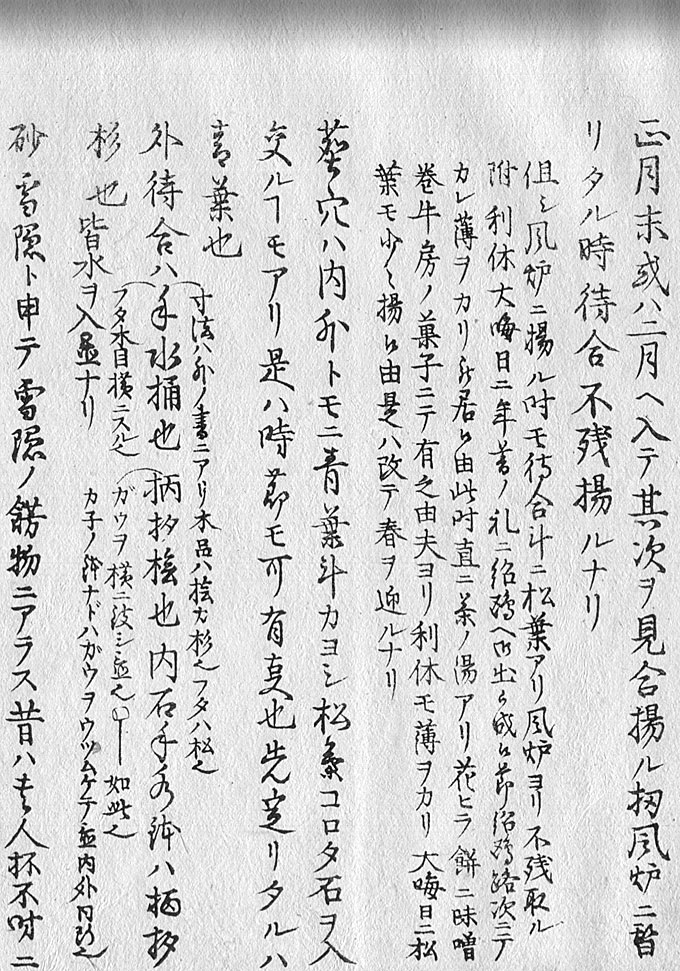 正月末或ハ二月ヘ入テ其次ヲ見合揚ル扨風炉ニ暫
リタル時待合不残揚ルナリ
但シ風炉ニ揚ル時モ待合斗ニ松葉アリ風炉ヨリ不残取ル
附利休大晦日ニ年暮ノ礼ニ紹鴎ヘ御出候節紹鴎路次ニテ
カレ薄ヲカリ居候由此時直ニ茶ノ湯アリ花ヒラ餅ニ味噌
巻牛房ノ菓子ニテ有之由夫ヨリ利休モ薄ヲカリ大晦日ニ松
葉モ少々揚候由是ハ改テ春ヲ迎ルナリ
塵穴ハ内外トモニ青葉斗カヨシ松葉コロタ石ヲ入
交ルヿモアリ是ハ時節モ可有事也先定リタルハ
青葉也
寸法ハ外ノ書ニアリ木品ハ桧カ杉也フタハ松也
外待合ハ手水桶也柄杓桧也内石手水鉢ハ柄杓
フタ木目横ニスル也 ガウヲ横ニ伏シ置也 如此也
杉也皆水ヲ入置ナリ
カ子ノ鉢ナドハガウヲウツムケテ置内外同断也
砂雪隠ト申テ雪隠ノ餝物ニアラス昔ハ貴人杯不時ニ